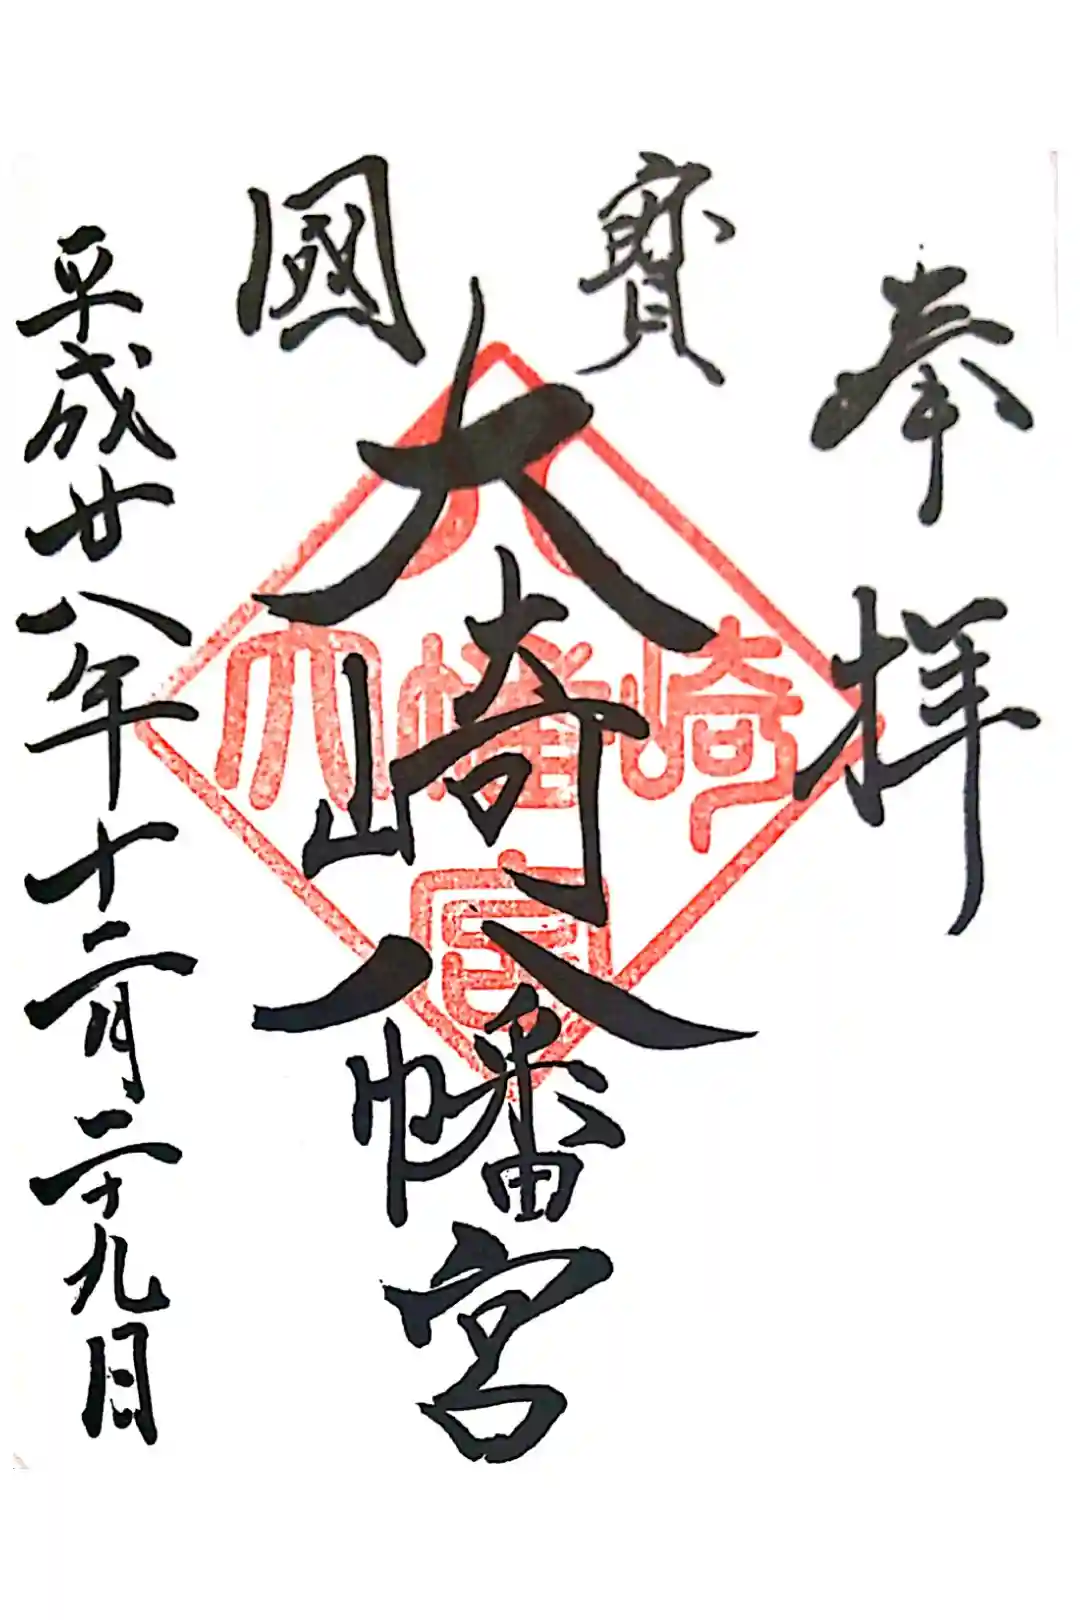 奉拝
國寳
大崎八幡宮
八
大幡崎
宮
平成廿八年十二月二十九日